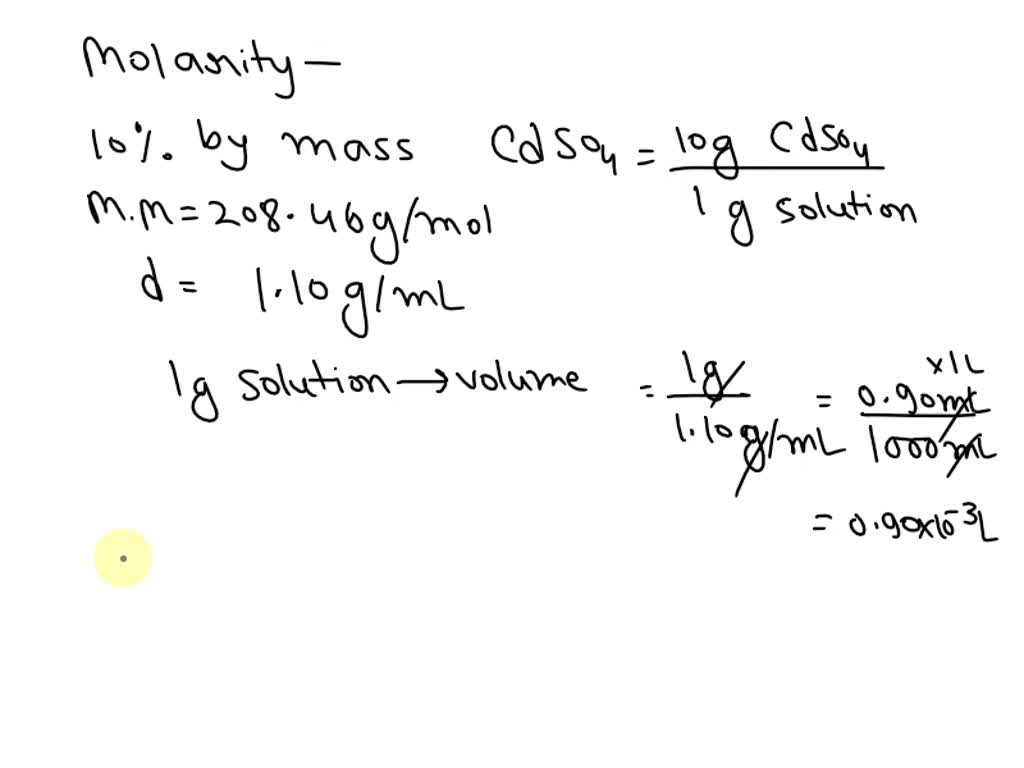 Molarity —
10%. by mass CdSO4 = 10g CdSO4 / 1 g solution
M.M = 208.46g/mol
d = 1.10g/mL
1g solution → volume = 1g / 1.10g/mL = 0.90mL × 1L / 1000mL
= 0.90×10⁻³L